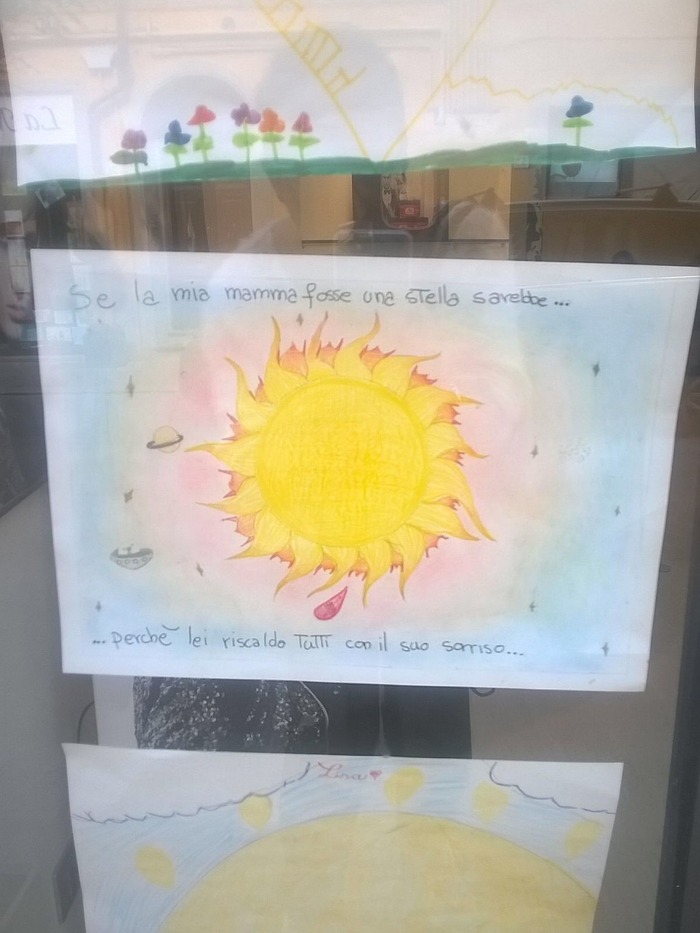 Se la mia mamma fosse una stella sarebbe...
...perchè lei riscalda Tutti con il suo sorriso...
Lisa